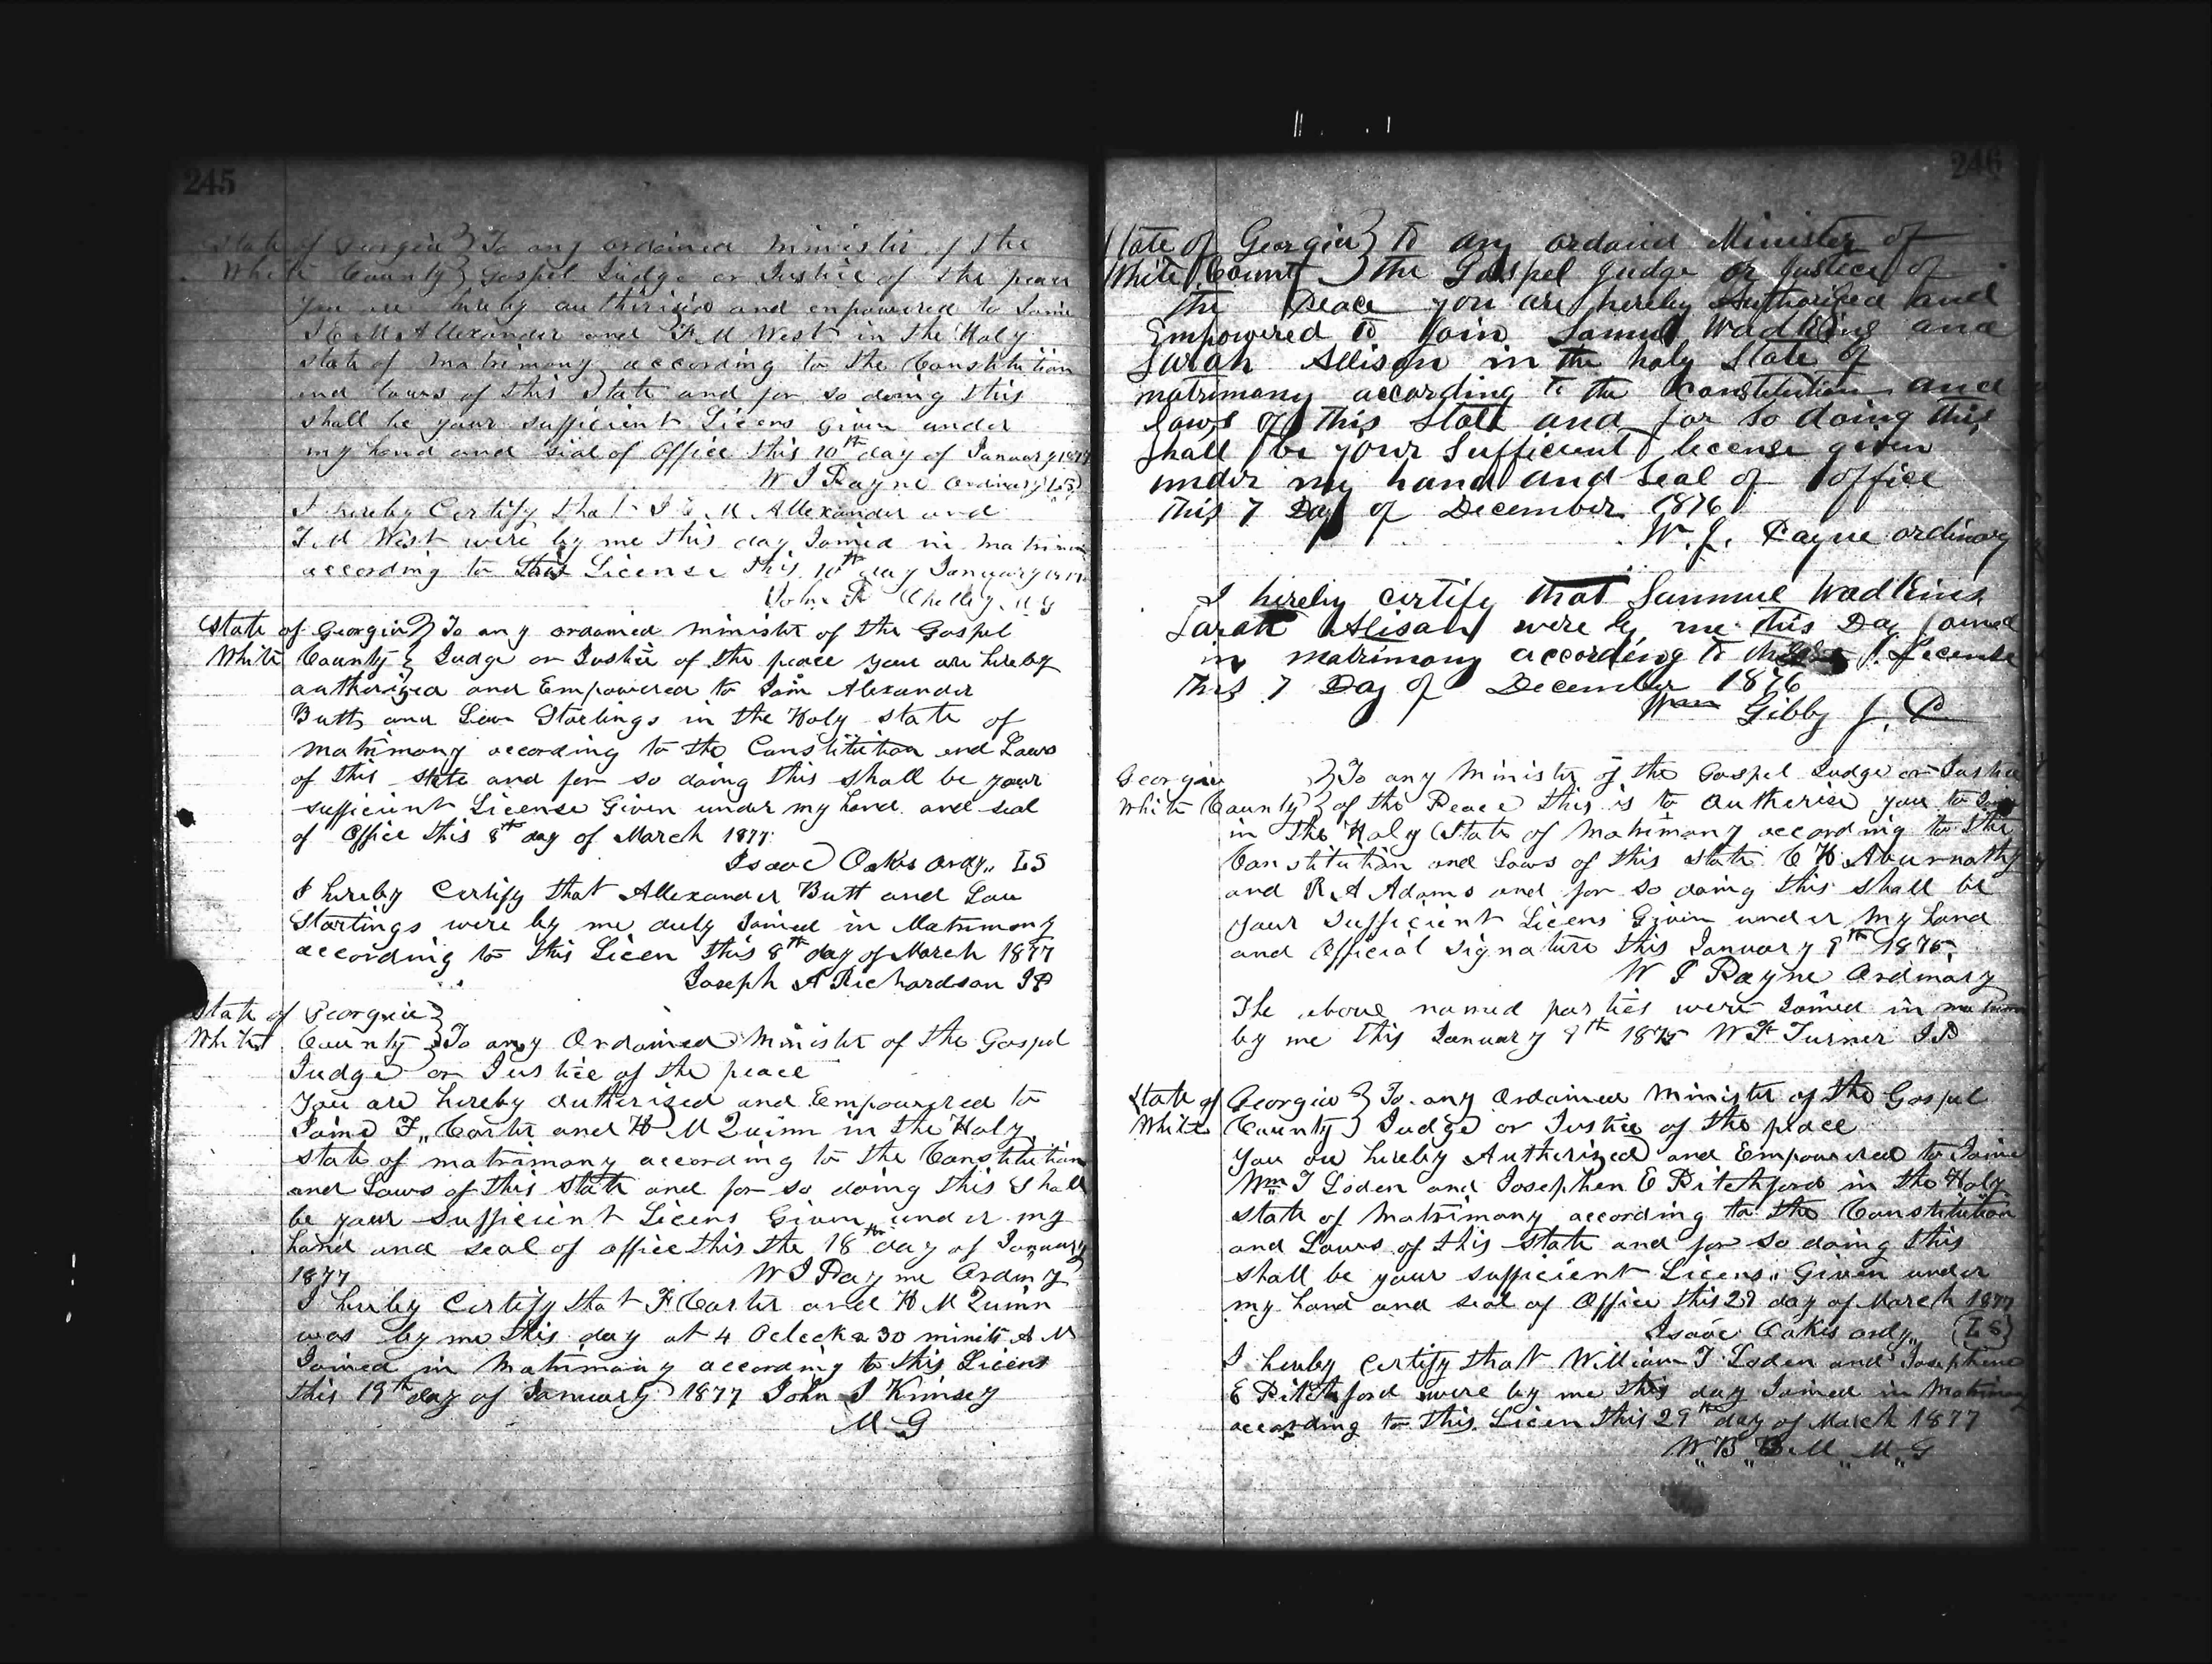 245
State of Georgia } To any ordained Minister of the
White County } Gospel Judge or Justice of the peace
You are hereby authirised and enpowered to Joine
M Allexander and F. M West in the Holy
state of matrimony according to the Constitution
and laws of this State and for so doing this
shall be your sufficient Licens Given under
my hand and seal of Office this 10th day of January 1877
W J Payne Ordinary (LS)
I hereby Certify that M Allexander and
F. M West were by me this day Joined in matrimony
according to this License this 10th day January 1877
John M G
State of Georgia } To any ordained minister of the Gospel
White County } Judge or Justice of the peace you are hereby
authorized and Empowered to Join Alexander
Butt and Starlings in the Holy state of
matrimony according to the Constitution and Laws
of this state and for so doing this shall be your
sufficient License Given under my hand and seal
of Office this 8th day of March 1877
Isaac Oakes Ordy,, LS
I hereby Certify that Allexander Butt and Lou
Startings were by me duly Joined in Matrimony
according to this Licen this 8th day of March 1877
Joseph A Richardson JP
State of Georgia }
White County } To any Ordained Minister of the Gospel
Judge or Justice of the peace
You are hereby authorized and Empowered to
Joine F,, Carter and H M Quinn in the Holy
state of matrimony according to the Constitution
and Laws of this state and for so doing this Shall
be your sufficient Licens Given under my
hand and seal of office this the 18th day of January
1877 W J Payne Ordiny
I hereby Certify that F Carter and H M Quinn
was by me this day at 4 Oclock & 30 minits A M
Joined in Matrimony according to this Licens
this 19th day of January 1877 John J Kimsey
M G
246
State of Georgia } To any ordaind Minister of
White Count } the Gospel Judge or Justice of
the Peace you are hereby Authorised and
Empowered to Join Samuel Wadkins and
Sarah Allison in the holy State of
matrimony according to the Constitution and
laws of this State and for so doing this
shall be your Sufficient license given
under my hand and seal of office
this 7 Day of December 1876
W. J. Payne ordinary
I hereby certify that Sammul Wadkins
Sarah Alisan were by me this Day joined
in matrimony according to License
this 7 Day of December 1876
Wm Gibby J. P
Georgia } To any Minister of the Gospel Judge or Justice
White County } of the Peace this is to Autherise you to Join
in the Holy State of Matrimony according to the
Constitution and Laws of this state C H Aburnathy
and R. A Adams and for so doing this shall be
your Sufficient Licens Given under my hand
and Official Signature this January 9th 1875
W J Payne Ordinary
The above named parties were Joined in
by me this January 9th 1875 W F Turner J P
State of Georgia } To any Ordained Minister of the Gospel
White County } Judge or Justice of the place
You are hereby Authorized and Empowered to Joine
Wm T Loden and Josephen E Pitchford in the Holy
state of Matrimony according to the Constitution
and Laws of this state and for so doing this
shall be your sufficient Licens,, Given under
my hand and seal of Office this 29 day of March 1877
Isaac Oakes ordy,, (LS)
I hereby certify that William T Loden and Josephine
E Pitchford were by me this day Joined in Matrimony
according to this Licen this 29th day of March 1877
W,, B,, B. M,, M,, G